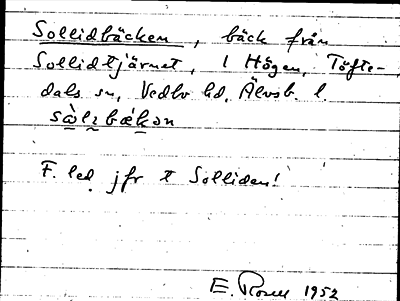 Sollidbäcken, bäck från
Sollidtjärnet, i Högen, Töfte-
dals sn, Vedbo hd, Älvsb. l.
sòlɩbækən
F. led jfr t Solliden!
E. Rosell 1952